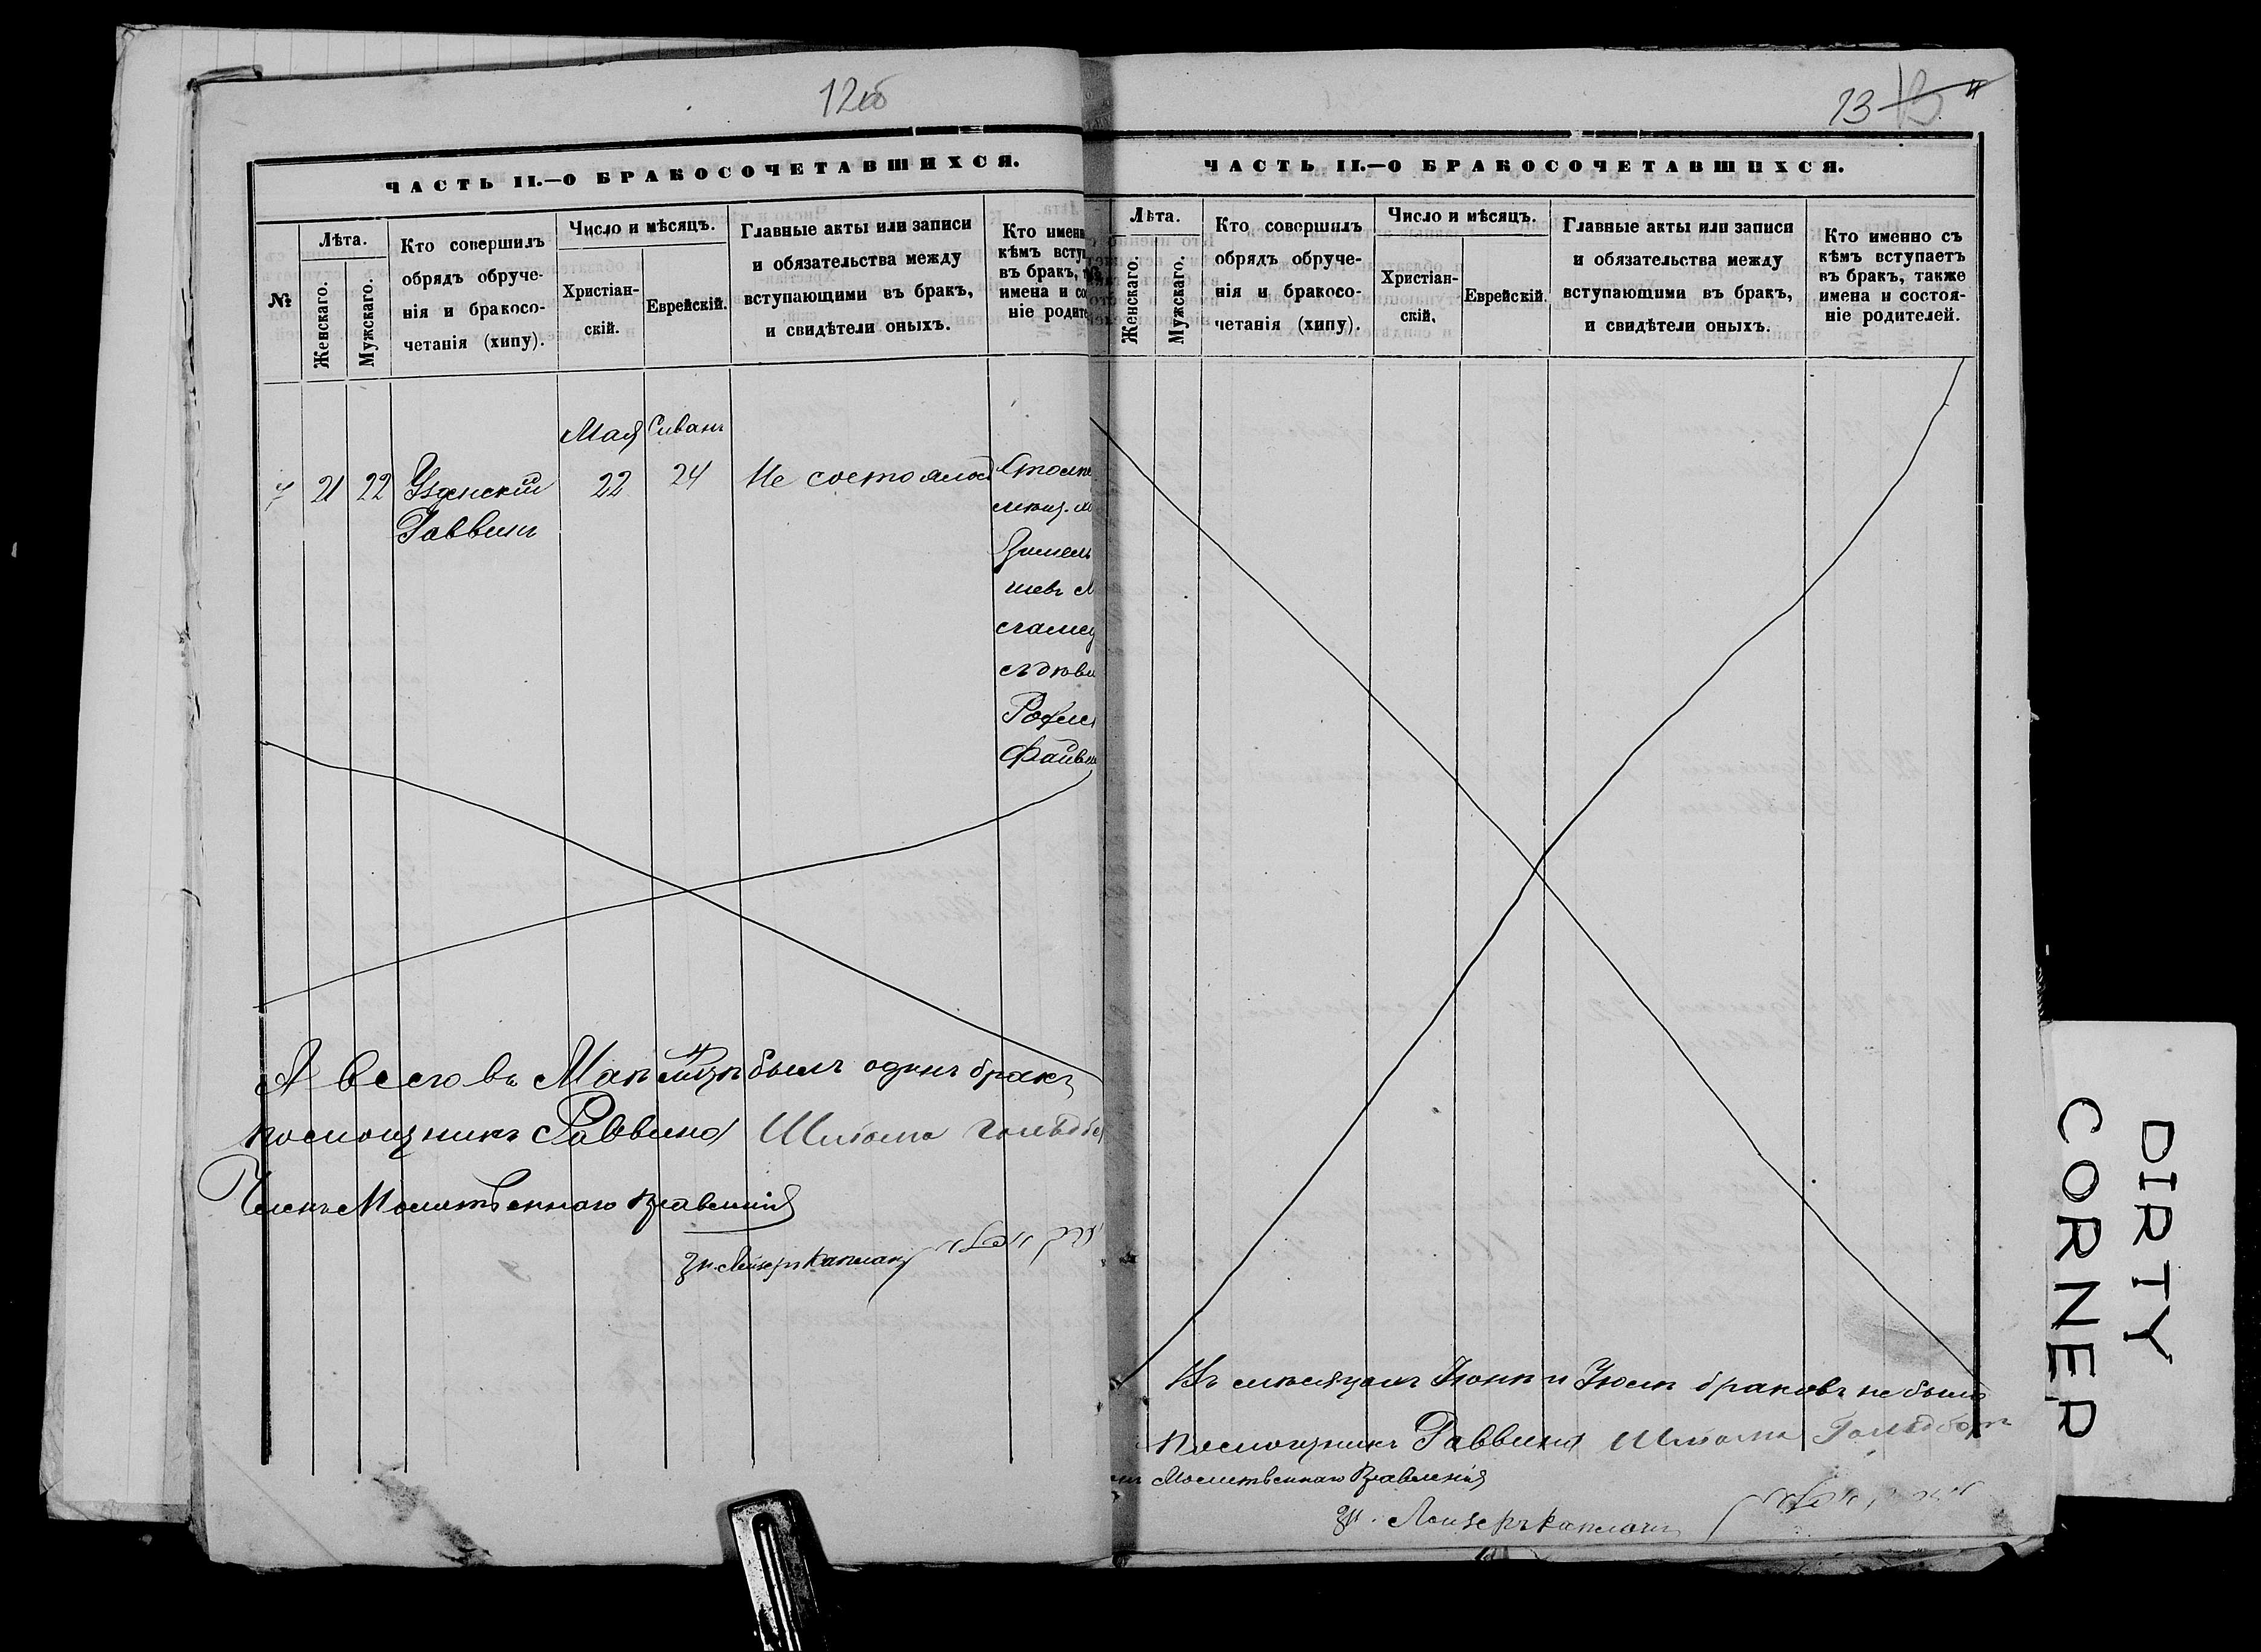 12об
ЧАСТЬ II.—О БРАКОСОЧЕТАВШИХСЯ.
№
Лѣта.
Женскаго.
Мужскаго.
Кто совершилъ
обрядъ обруче-
нія и бракосо-
четанія (хипу).
Число и мѣсяцъ.
Христіан-
скій.
Еврейскій.
Главные акты или записи
и обязательства между
вступающими въ бракъ,
и свидѣтели оныхъ.
Кто имен
кѣмъ всту
въ бракъ,
имена и со
ніе родите
Мая Сиванъ
7 21 22 Узденскій 22 24 Не состоялось
Раввинъ
Файв
А всего въ Маѣ м-цѣ былъ одинъ бракъ
Помощникъ Раввина Шлиома Гольдбе
Членъ Молитвеннаго Правленія
Лейзеръ Капланъ
13 13
ЧАСТЬ II.—О БРАКОСОЧЕТАВШИХСЯ.
№
Лѣта.
Женскаго.
Мужскаго.
Кто совершилъ
обрядъ обруче-
нія и бракосо-
четанія (хипу).
Число и мѣсяцъ.
Христіан-
скій.
Еврейскій.
Главные акты или записи
и обязательства между
вступающими въ бракъ,
и свидѣтели оныхъ.
Кто именно съ
кѣмъ вступаетъ
въ бракъ, также
имена и состоя-
ніе родителей.
Въ мѣсяцахъ Іюнѣ и Іюлѣ браковъ не было
Помощникъ Раввина Шлиома Гольдбергъ
Молитвеннаго Правленія
Лейзеръ Капланъ
DIRTY
CORNER